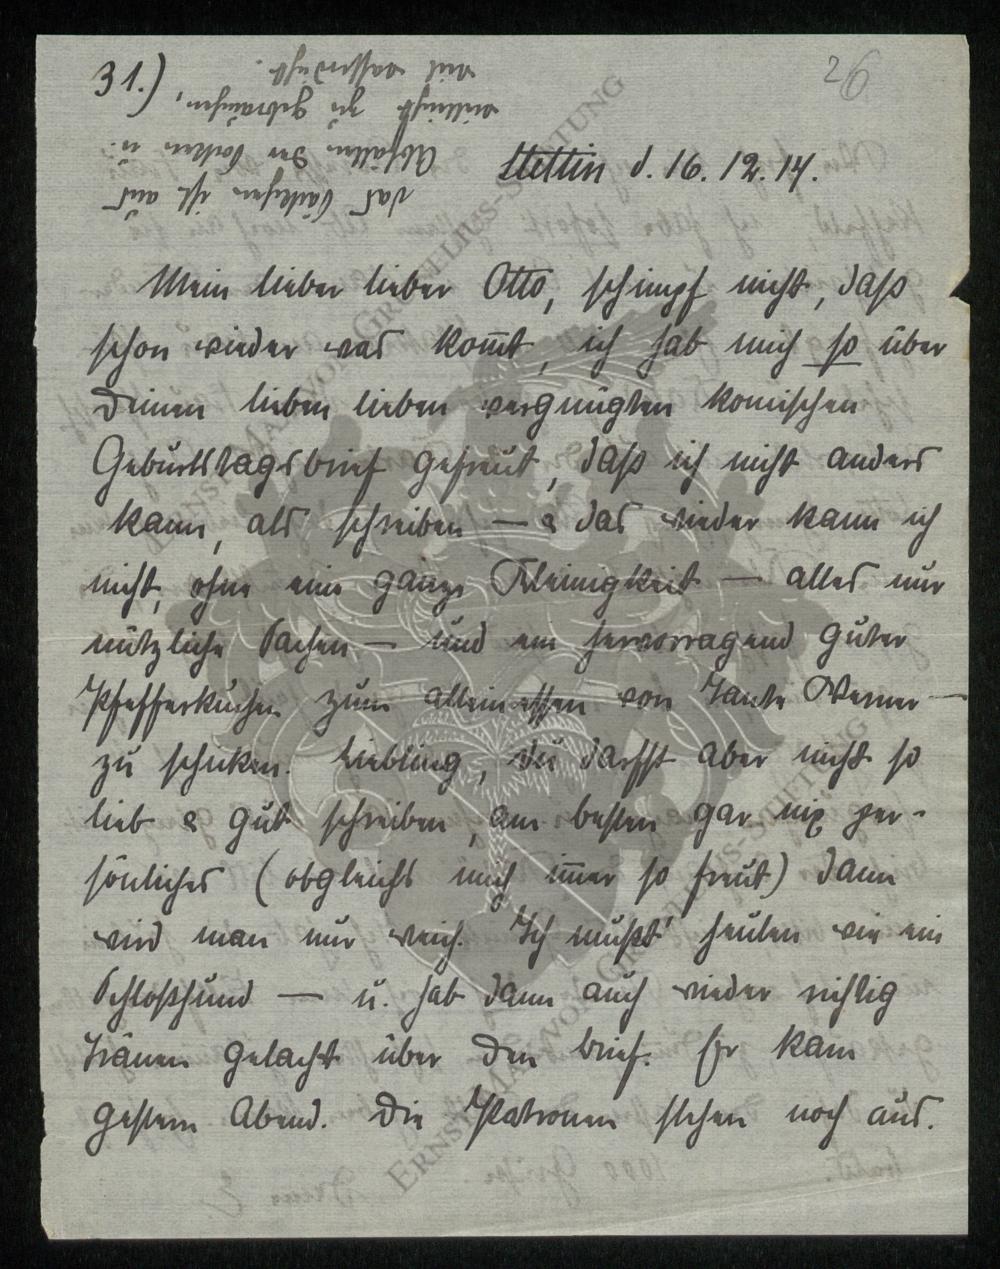 31.)
26
Stettin d. 16. 12. 14.
Mein lieber lieber Otto, schimpf nicht, daß
schon wieder was kom̅t, ich hab mich so über
Deinen lieben lieben vergnügten komischen
Geburtstagsbrief gefreut, daß ich nicht anders
kann, als schreiben — & das wieder kann ich
nicht, ohne eine ganze Kleinigkeit — alles nur
nützliche Sachen — und ein hervorragend guter
Pfefferkuchen zum alleinessen von Tante Werner —
zu schicken. Liebling, du darfst aber nicht so
lieb & gut schreiben, am besten gar nix per-
sönliches (obgleichs mich im̅er so freut) dann
wird man nur weich. Ich mußt' heulen wie ein
Schloßhund — u. hab dann auch wieder richtig
Tränen gelacht über den Brief. Er kam
gestern Abend. Die Patronen stehen noch aus.
Das Säckchen ist aus
Abfällen der Jacken u.
vielleicht zu gebrauchen,
weil wasserdicht.
ERNST-MARNO VON GRAELIUS-STIFTUNG